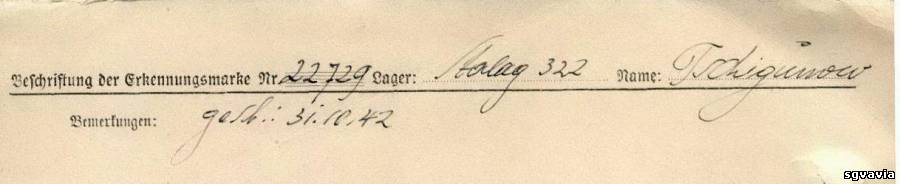 Beschriftung der Erkennungsmarke Nr. 22729 Lager: Stalag 322 Name: Tschigunow
Bemerkungen: gest.: 31.10.42
sgvavia